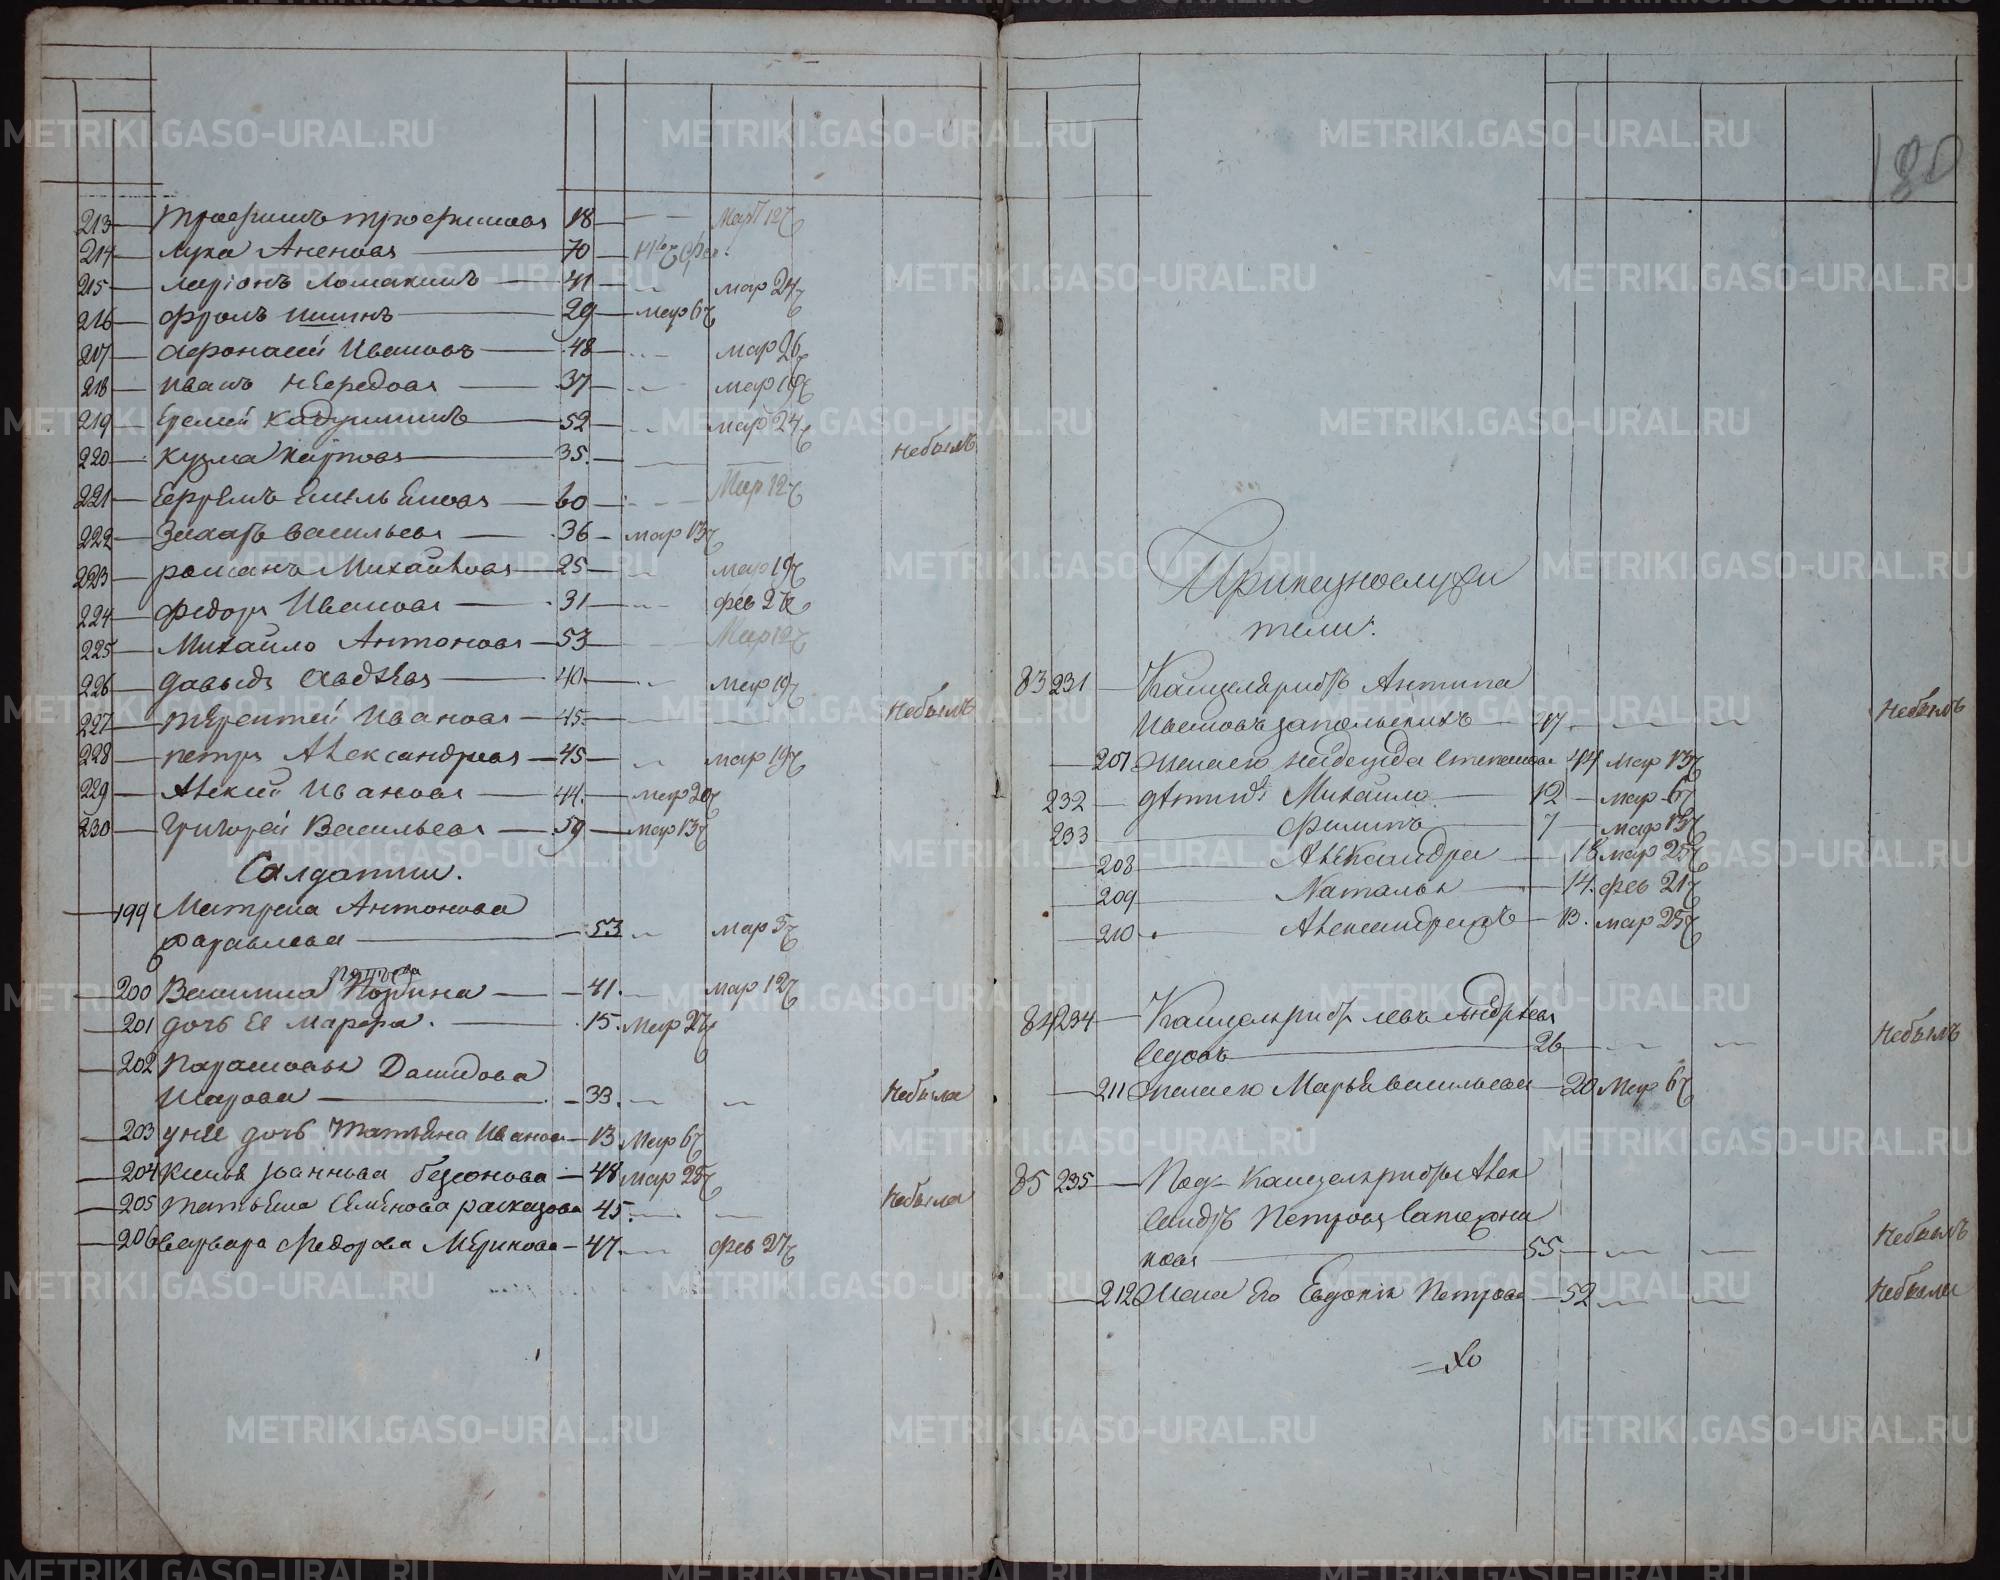 213 Трофимъ Трофимовъ 18 Мар 12
214 Лука 70
215 Ларіонъ Ломакинъ 41 мар 24
216 Фролъ 29 мар 6
217 Афонасей Ивановъ 48 мар 26
218 Иванъ 37 мар 19
219 Еремей 52 мар 24
220 Кузма Карповъ 35 небылъ
221 Ефремъ Емельяновъ 60 Мар 12
222 Захаръ Васильевъ 36 мар 13
223 Романъ Михайловъ 25 мар 19
224 Федоръ Ивановъ 31 фев 27
225 Михайло Антоновъ 53 Мар 12
226 Давыдъ Авдѣевъ 40 мар 19
227 Терентей Ивановъ 45 небылъ
228 Петръ Александровъ 45 мар 19
229 Алексѣй Ивановъ 44 мар 20
230 Григорей Васильевъ 59 мар 13
Салдатки.
199 Матрена Антонова
53 мар 5
Петрова
200 Василиса 41 мар 12
201 дочь Ея Марфа 15 мар 27
202 Парасковья Давидова
Шарова 33 небыла
203 у нее дочь Татьяна Иванова 13 мар 6
204 Ксенья Іоаннова 48 мар 25
205 Татьяна Семенова расказова 45 небыла
206 Варвара Федорова Меринова 47 фев 27
180
Приказнослужи
тели.
83 231 Канцеляристъ Антипа
Ивановъ запольскихъ 47 небылъ
207 жена ево Надежда Степанова 44 мар 13
232 дети ихъ Михайло 12 мар 6
233 Филипъ 7 мар 13
208 Александра 18 мар 25
209 Наталья 14 фев 21
210 13 мар 25
84 234 Канцеляристъ левъ Андреевъ
Седовъ 26 небылъ
211 жена ево Марья Васильева 20 мар 6
85 235 Под-Канцеляристъ Алек
сандръ Петровъ Сапожни
ковъ 55 небылъ
212 Жена Его Евдокія Петрова 52 небыла
METRIKI.GASO-URAL.RU